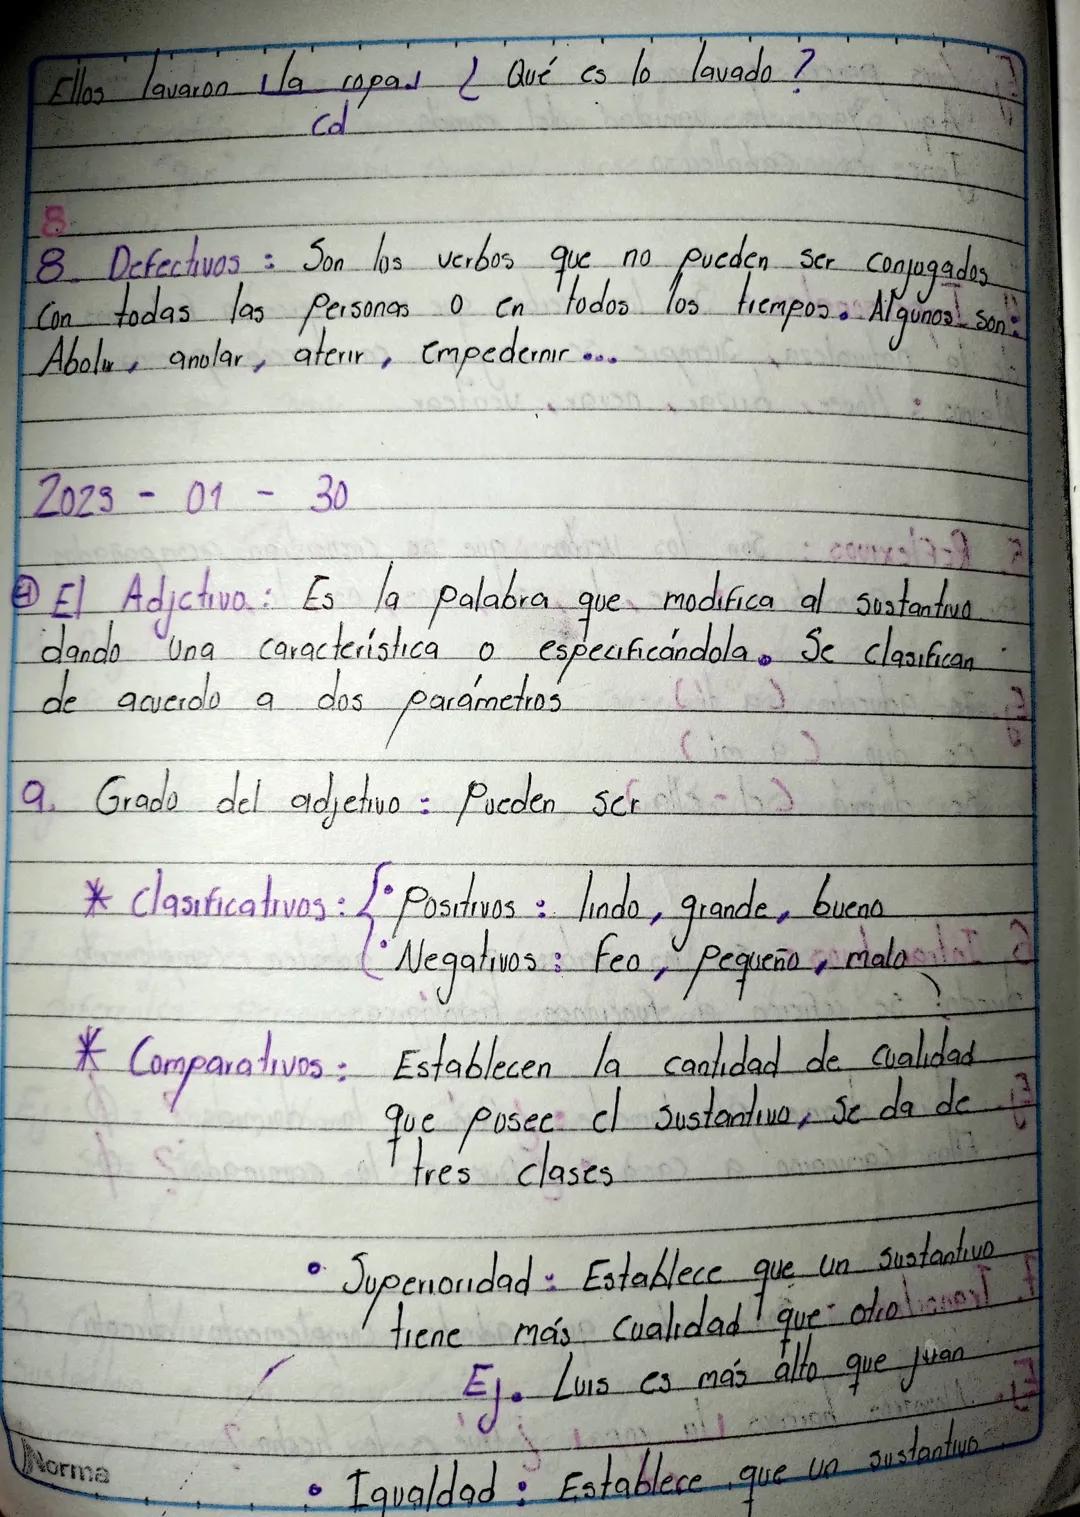 Ellos lavaron la ropa ¿Qué es lo lavado?
cd
8
8. Defectivos: Son los verbos que no pueden ser conjugados
con todas las personas o en todos los tiempos. Algunos son:
Abolir, anolar, aterir, empedernir...
2023 - 01 - 30
El Adjctivo: Es la palabra que modifica al sustantivo
dando una característica o especificándola. Se clasifican
de acuerdo a dos parámetros
9. Grado del adjetivo: Pueden ser
* Clasificativos: { • Positivos: lindo, grande, bueno
• Negativos: Feo, pequeño, malo
* Comparativos: Establecen la cantidad de cualidad
que posee el sustantivo, se da de
tres clases
• Superioridad: Establece que un sustantivo
tiene más cualidad que otro
Ej. Luis es más alto que juan
Norma
• Igualdad: Establece que un sustantivo